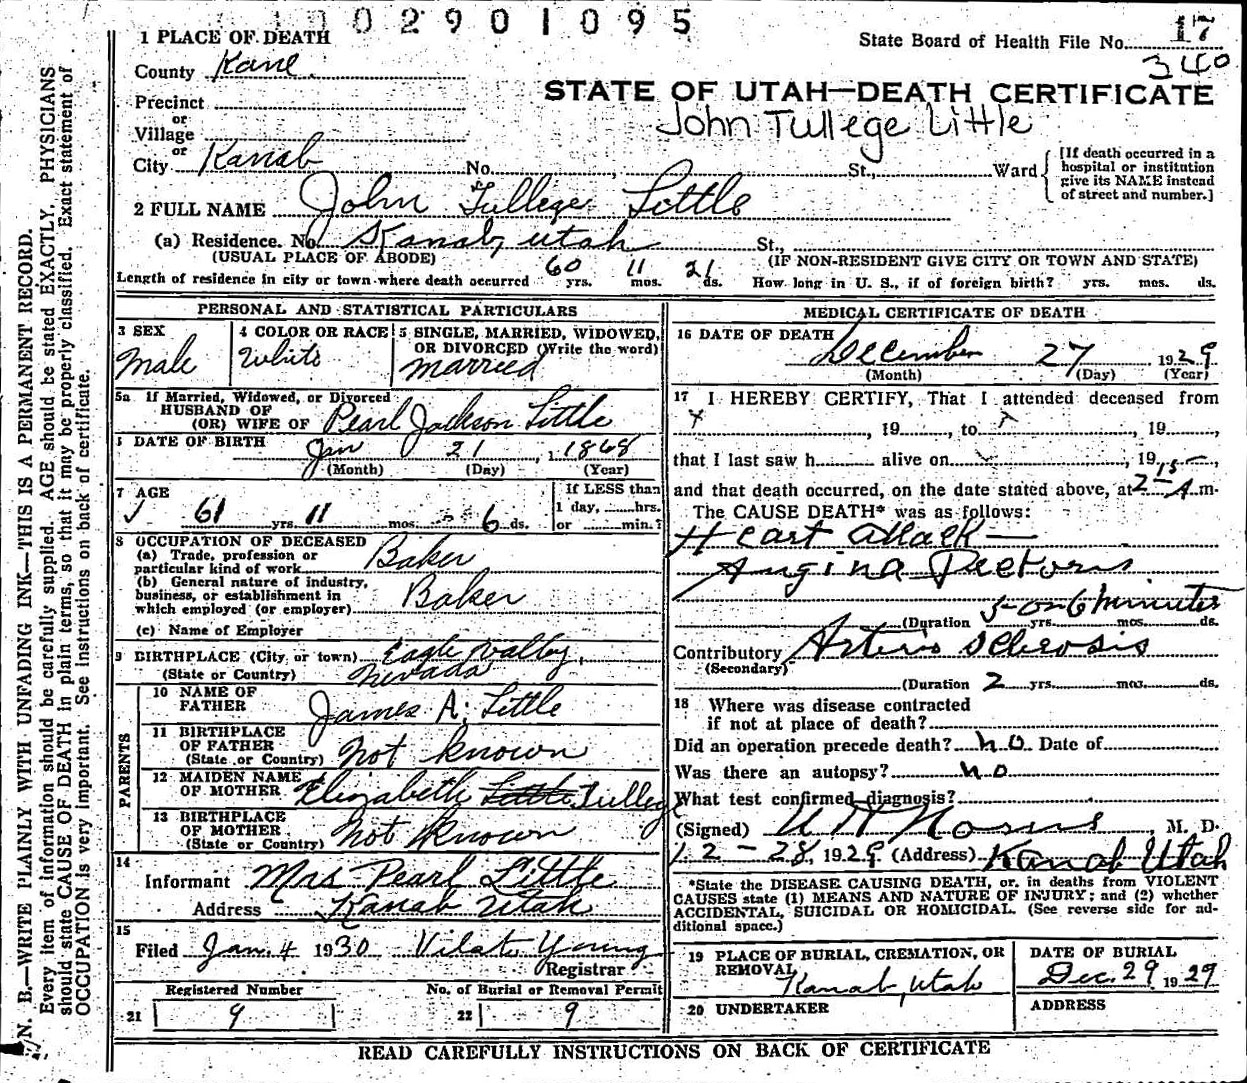 1 0 0 2 9 0 1 0 9 5
State Board of Health File No. 17
340
1 PLACE OF DEATH
County Kane.
Precinct
or
Village
or
City Kanab No. , St., Ward
[If death occurred in a hospital or institution give its NAME instead of street and number.]
STATE OF UTAH—DEATH CERTIFICATE
John Tullege Little
2 FULL NAME John Tullege Little
(a) Residence. No. Kanab, Utah St.,
(USUAL PLACE OF ABODE) (IF NON-RESIDENT GIVE CITY OR TOWN AND STATE)
Length of residence in city or town where death occurred 60 yrs. 11 mos. 21 ds. How long in U. S., if of foreign birth? yrs. mos. ds.
PERSONAL AND STATISTICAL PARTICULARS
3 SEX
Male
4 COLOR OR RACE
White
5 SINGLE, MARRIED, WIDOWED,
OR DIVORCED (Write the word)
Married
5a If Married, Widowed, or Divorced
HUSBAND OF
(OR) WIFE OF Pearl Jackson Little
DATE OF BIRTH
Jan 21, 1868
(Month) (Day) (Year)
7 AGE
61 yrs. 11 mos. 6 ds.
If LESS than
1 day, hrs.
or min.?
8 OCCUPATION OF DECEASED
(a) Trade, profession or
particular kind of work Baker
(b) General nature of industry,
business, or establishment in
which employed (or employer) Baker
(c) Name of Employer
9 BIRTHPLACE (City or town) Eagle Valley,
(State or Country) Nevada
PARENTS
10 NAME OF
FATHER James A. Little
11 BIRTHPLACE
OF FATHER
(State or Country) Not known
12 MAIDEN NAME
OF MOTHER Elizabeth Little Tullege
13 BIRTHPLACE
OF MOTHER
(State or Country) Not known
14
Informant Mrs Pearl Little
Address Kanab Utah
15
Filed Jan. 4 1930 Vilate Young
Registrar
Registered Number No. of Burial or Removal Permit
21 9 22 9
MEDICAL CERTIFICATE OF DEATH
16 DATE OF DEATH
December 27 1929
(Month) (Day) (Year)
17 I HEREBY CERTIFY, That I attended deceased from
, 19 , to , 19 ,
that I last saw h alive on , 19 ,
and that death occurred, on the date stated above, at 2 15 A. m.
The CAUSE DEATH* was as follows:
Heart attack—
Angina Pectoris
5 or 6 minutes
(Duration yrs. mos. ds.
Contributory Arterio Sclerosis
(Secondary)
(Duration 2 yrs. mos. ds.
18 Where was disease contracted
if not at place of death?
Did an operation precede death? no Date of
Was there an autopsy? no
What test confirmed diagnosis?
(Signed) Norris, M. D.
12-28, 1929 (Address) Kanab Utah
*State the DISEASE CAUSING DEATH, or, in deaths from VIOLENT
CAUSES state (1) MEANS AND NATURE OF INJURY; and (2) whether
ACCIDENTAL, SUICIDAL OR HOMICIDAL. (See reverse side for ad-
ditional space.)
19 PLACE OF BURIAL, CREMATION, OR
REMOVAL
Kanab, Utah
DATE OF BURIAL
Dec. 29 1929
20 UNDERTAKER ADDRESS
READ CAREFULLY INSTRUCTIONS ON BACK OF CERTIFICATE
N. B.—WRITE PLAINLY WITH UNFADING INK—THIS IS A PERMANENT RECORD.
Every item of information should be carefully supplied. AGE should be stated EXACTLY, PHYSICIANS
should state CAUSE OF DEATH in plain terms, so that it may be properly classified. Exact statement of
OCCUPATION is very important. See instructions on back of certificate.